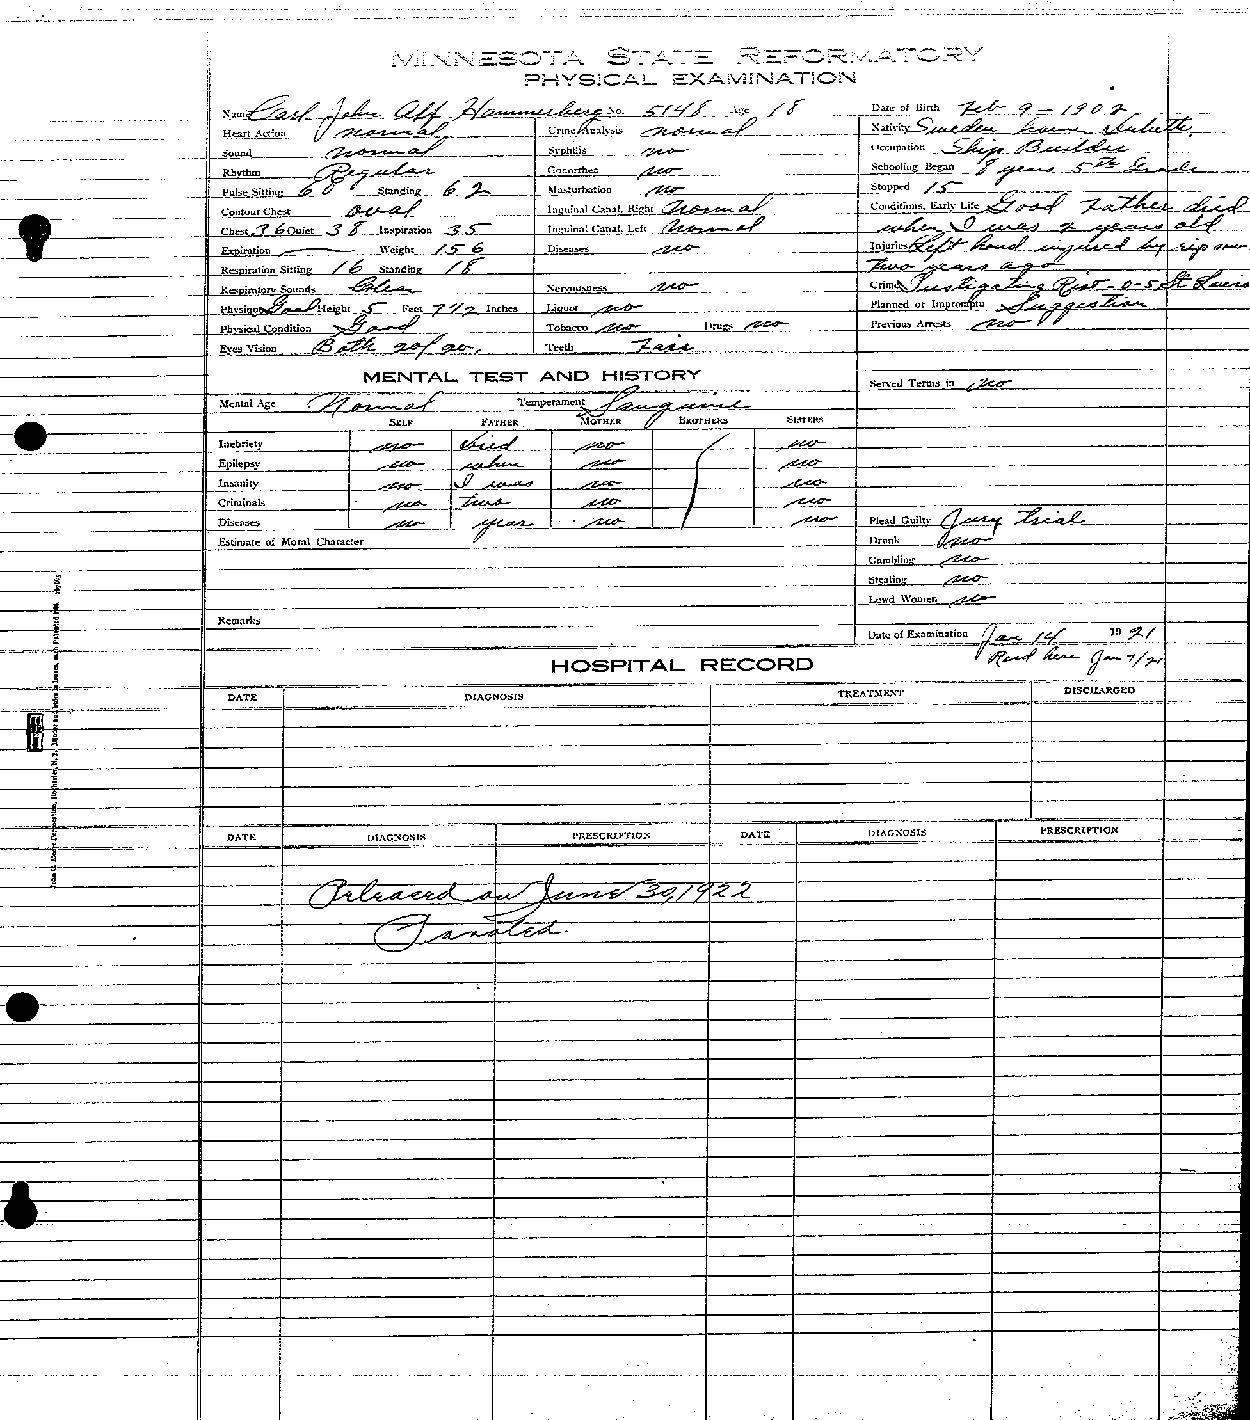 MINNESOTA STATE REFORMATORY
PHYSICAL EXAMINATION
Name Carl John Alf Hammerberg No. 5148 Age 18 Date of Birth Feb 9-1902
Heart Action normal Urine Analysis normal Nativity Sweden home Duluth.
Sound normal Syphilis no Occupation Ship Builder
Rhythm Regular Gonorrhea no Schooling Began 8 years 5th Grade
Pulse Sitting 68 Standing 62 Masturbation no Stopped 15
Contour Chest oval Inguinal Canal, Right Normal Conditions, Early Life Good Father died
Chest 36 Quiet 38 Inspiration 35 Inguinal Canal, Left Normal when I was 2 years old
Expiration Weight 156 Diseases no Injuries Left hand injured by rip saw
Respiration Sitting 16 Standing 18 two years ago
Respiratory Sounds Clear Nervousness no Crime Instigating Riot-0-5 St Louis
Physique Good Height 5 Feet 7 1/2 Inches Liquor no Planned or Impromptu Suggestion
Physical Condition Good Tobacco no Drugs no Previous Arrests no
Eyes Vision Both 20/20. Teeth Fair
MENTAL TEST AND HISTORY
Served Terms in no
Mental Age Normal Temperament Sanguine
SELF FATHER MOTHER BROTHERS SISTERS
Inebriety no Died no no
Epilepsy no when no no
Insanity no I was no no
Criminals no two no no
Diseases no year no no
Plead Guilty Jury trial
Estimate of Moral Character
Drunk no
Gambling no
Stealing no
Lewd Women no
Remarks
Date of Examination Jan 14 1921
Recd here Jan 7/21
HOSPITAL RECORD
DATE DIAGNOSIS TREATMENT DISCHARGED
DATE DIAGNOSIS PRESCRIPTION DATE DIAGNOSIS PRESCRIPTION
Released on June 30, 1922
Paroled.